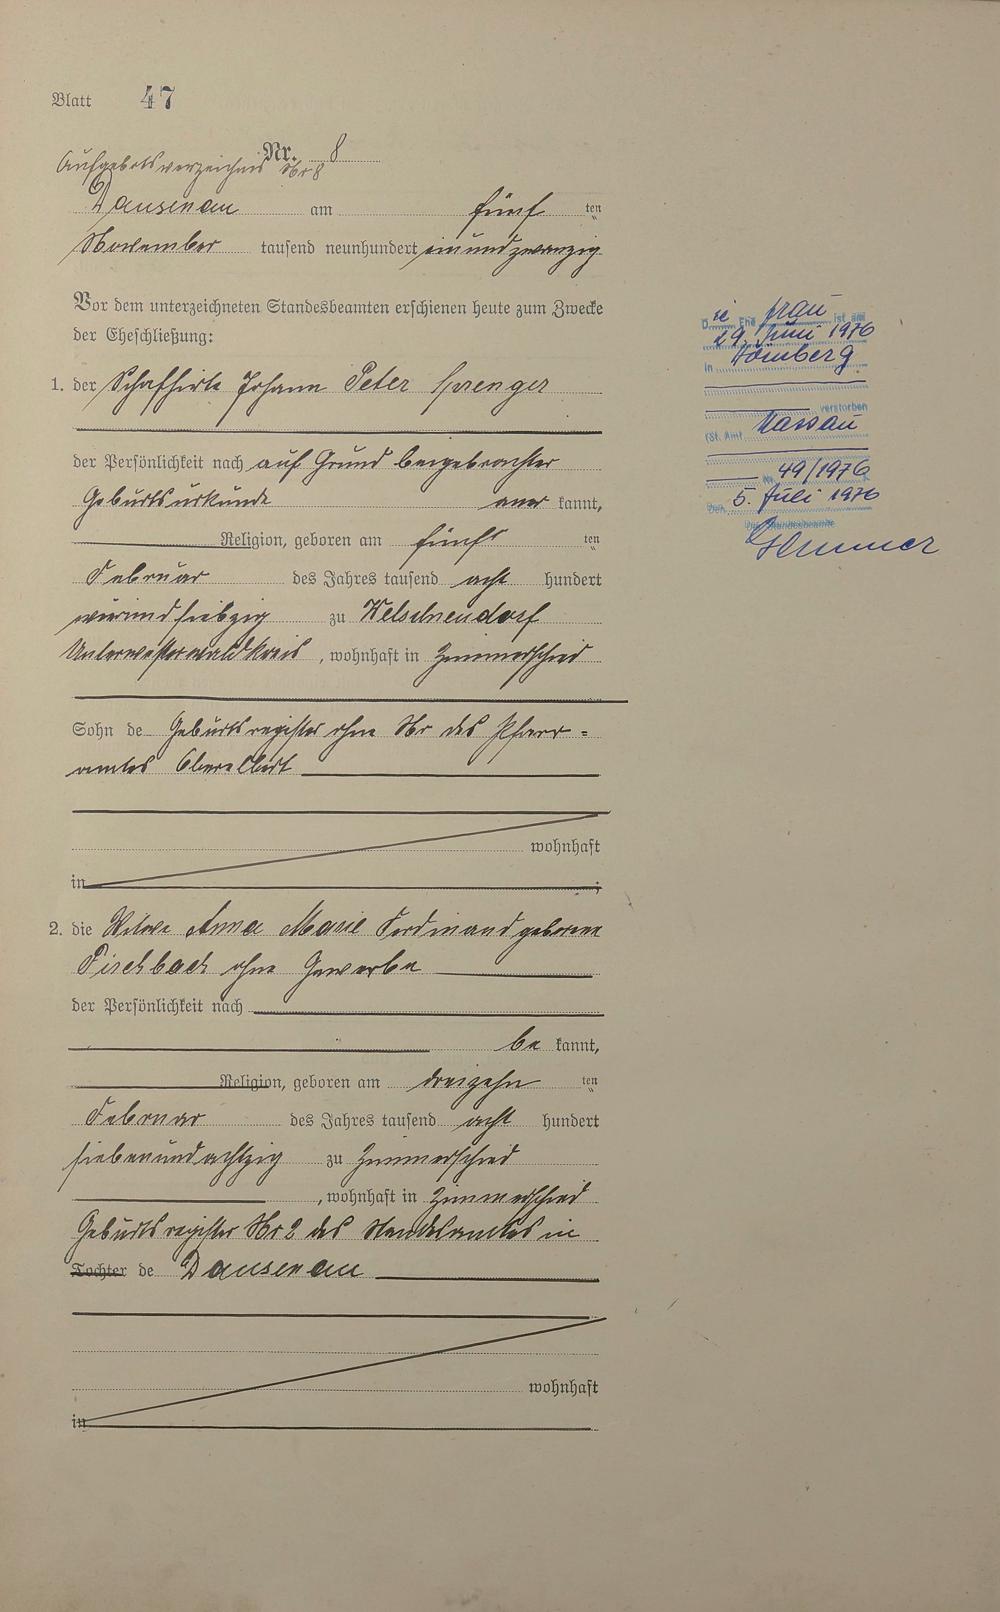 Blatt 47
Nr. 8
Aufgebotsverzeichnis Nr 8
Dausenau am fünf ten
November tausend neunhundert einundzwanzig
Vor dem unterzeichneten Standesbeamten erschienen heute zum Zwecke
der Eheschließung:
1. der Schafhirte Johann Peter Sprenger
der Persönlichkeit nach auf Grund beigebrachter
Geburtsurkunde aner kannt,
Religion, geboren am fünf ten
Februar des Jahres tausend acht hundert
vierundsiebzig zu Welschneudorf
Unterwesterwaldkreis, wohnhaft in Zimmerschied
Sohn de Geburtsregister ohne Nr des Pfarr=
amtes Oberelbert
wohnhaft
in ;
2. die Witwe Anna Marie Ferdinand geborene
Fischbach ohne Gewerbe
der Persönlichkeit nach
be kannt,
Religion, geboren am dreizehn ten
Februar des Jahres tausend acht hundert
siebenundachtzig zu Zimmerschied
, wohnhaft in Zimmerschied
Geburtsregister Nr 2 des Standesamtes in
Tochter de Dausenau
wohnhaft
in
Die Ehefrau ist am
29. Juni 1976
in Hömberg
verstorben
(St. Amt Nassau
Nr. 49/1976
Den 5. Juli 1976
Der Standesbeamte